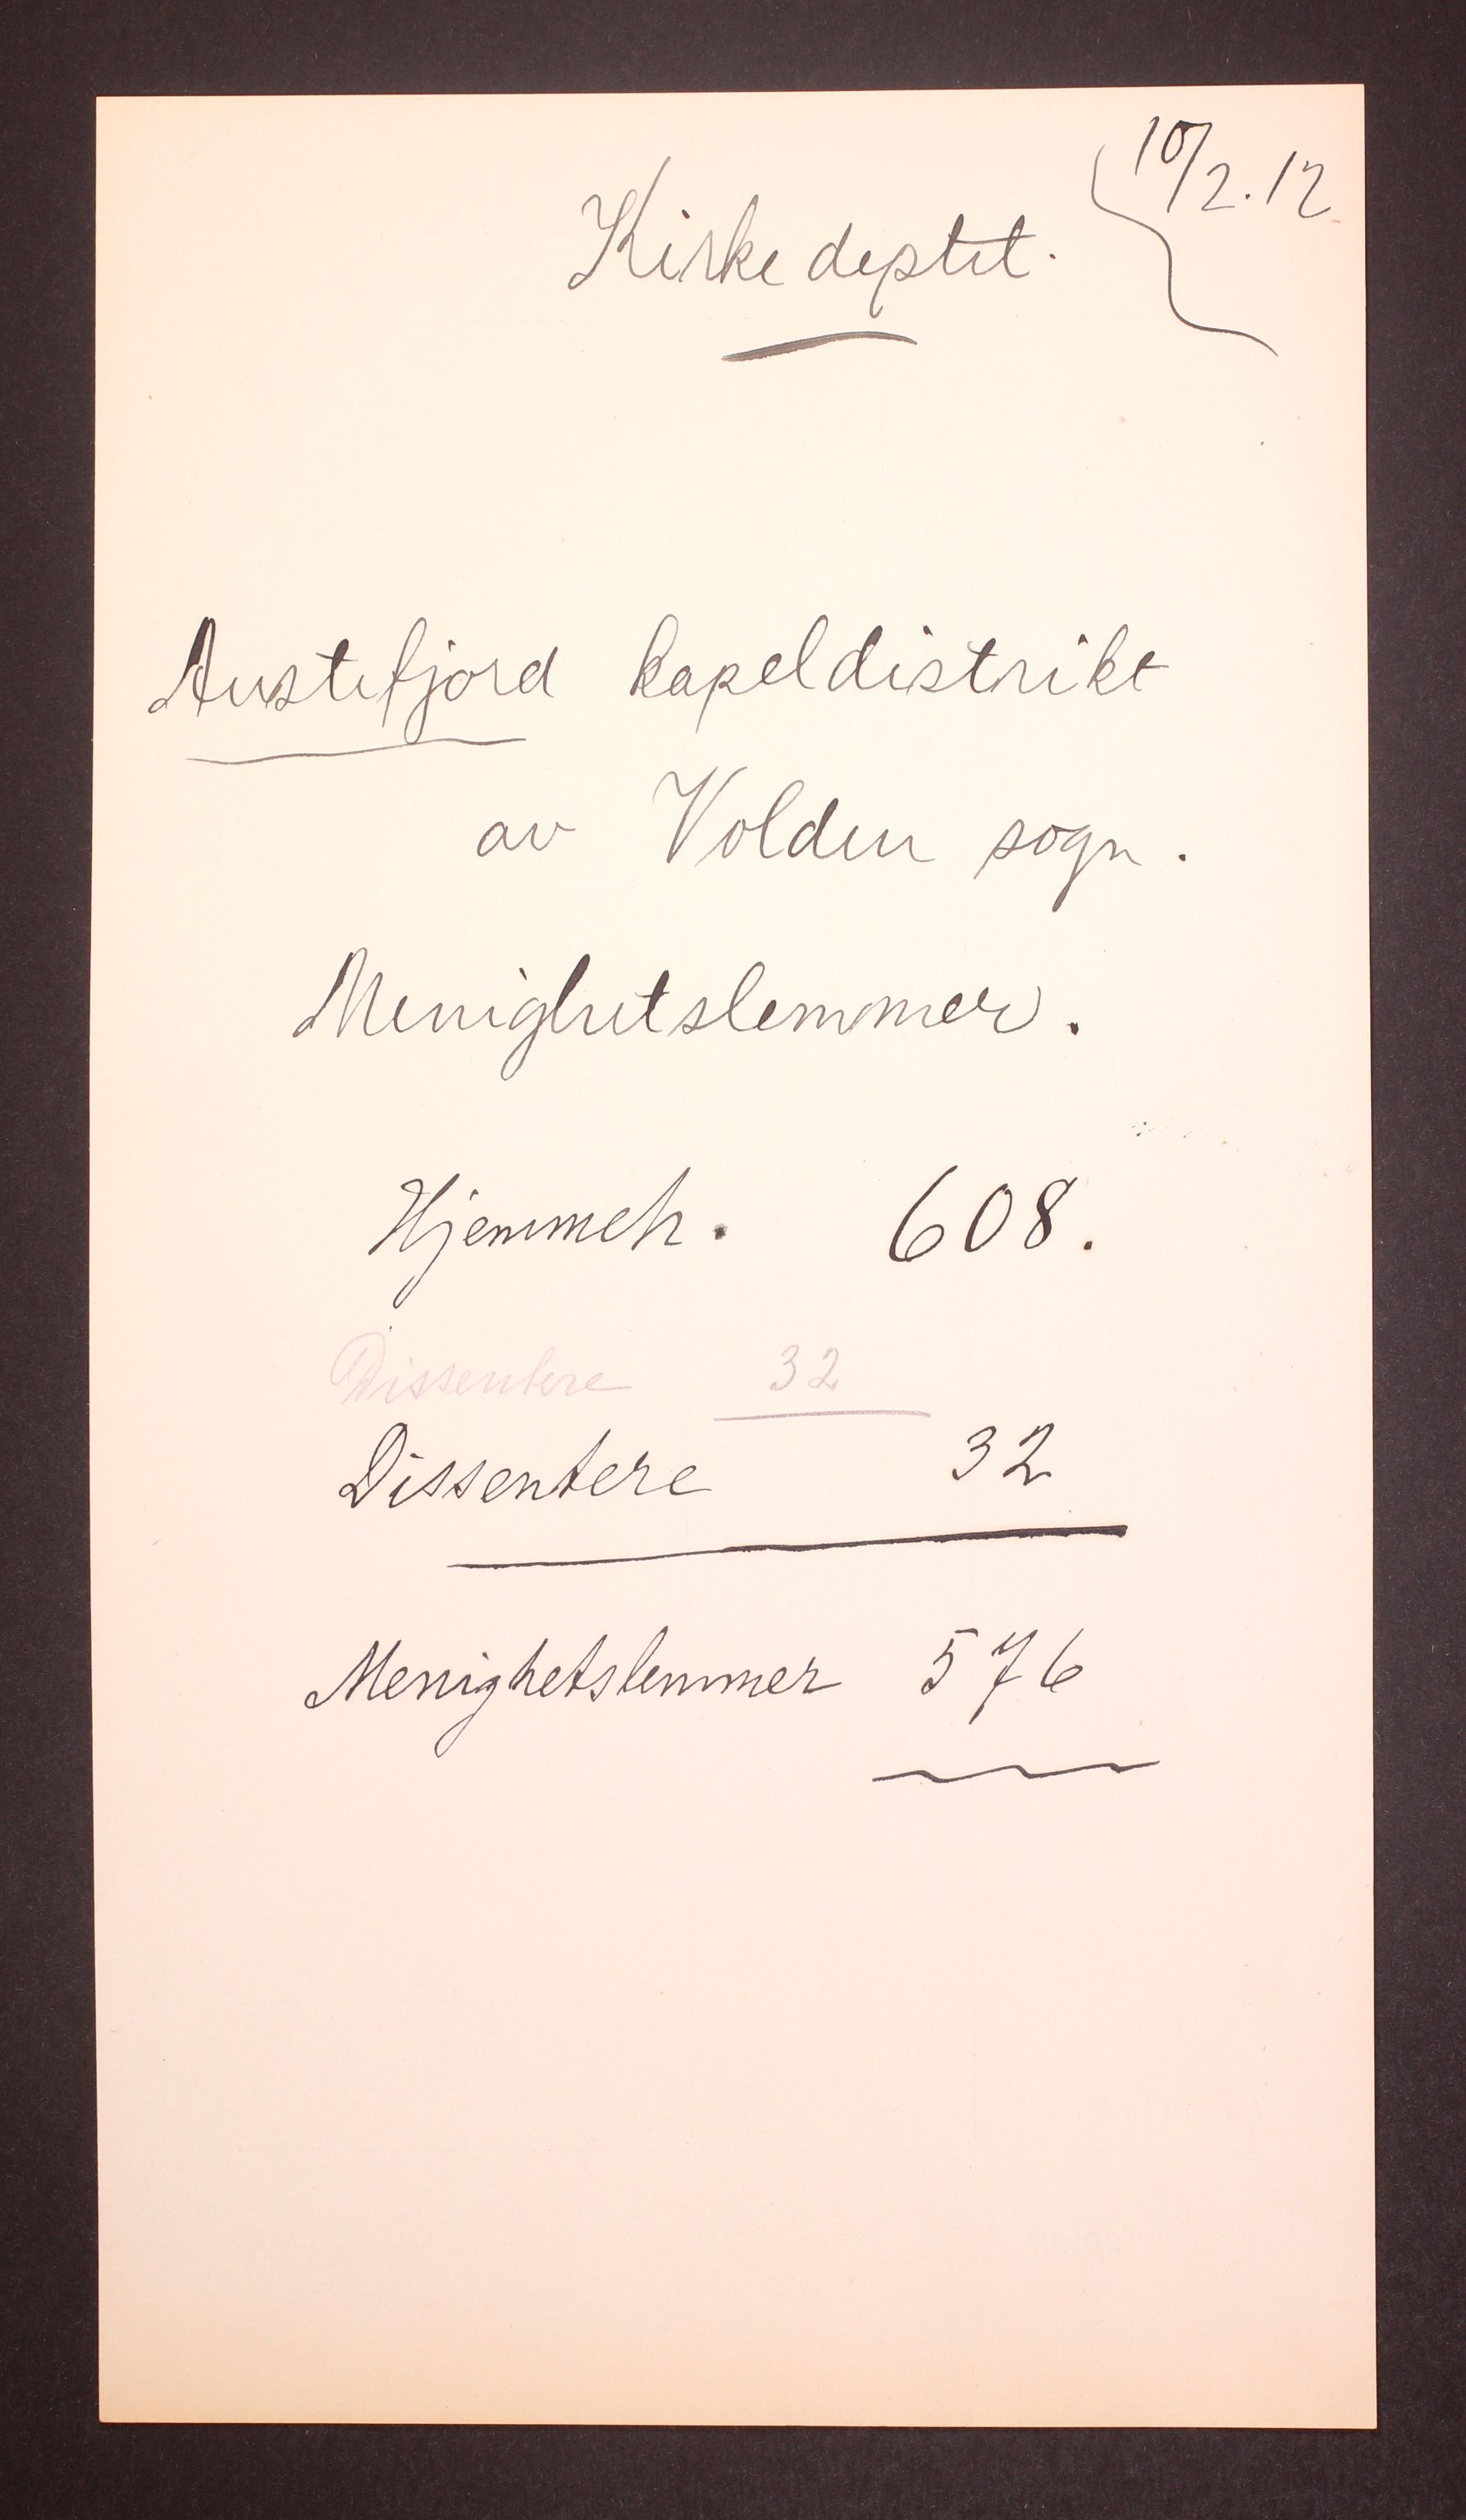 10/2.12
Kirkedeptet.
Austefjord kapeldistrikt
av Volden sogn.
Menighetslemmer.
Hjemmeh. 608.
Dissentere 32
Dissentere 32
Menighetslemmer 576